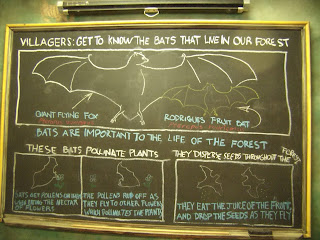 VILLAGERS: GET TO KNOW THE BATS THAT LIVE IN OUR FOREST
GIANT FLYING FOX
RODRIGUES FRUIT BAT
BATS ARE IMPORTANT TO THE LIFE OF THE FOREST
THESE BATS POLLINATE PLANTS
BATS GET POLLEN ON THEM
WHEN EATING THE NECTAR
OF FLOWERS
THE POLLENS RUB OFF AS
THEY FLY TO OTHER FLOWERS
WHICH POLLINATES THE PLANTS
THEY DISPERSE SEEDS THROUGHOUT THE FOREST
THEY EAT THE JUICE OF THE FRUIT,
AND DROP THE SEEDS AS THEY FLY